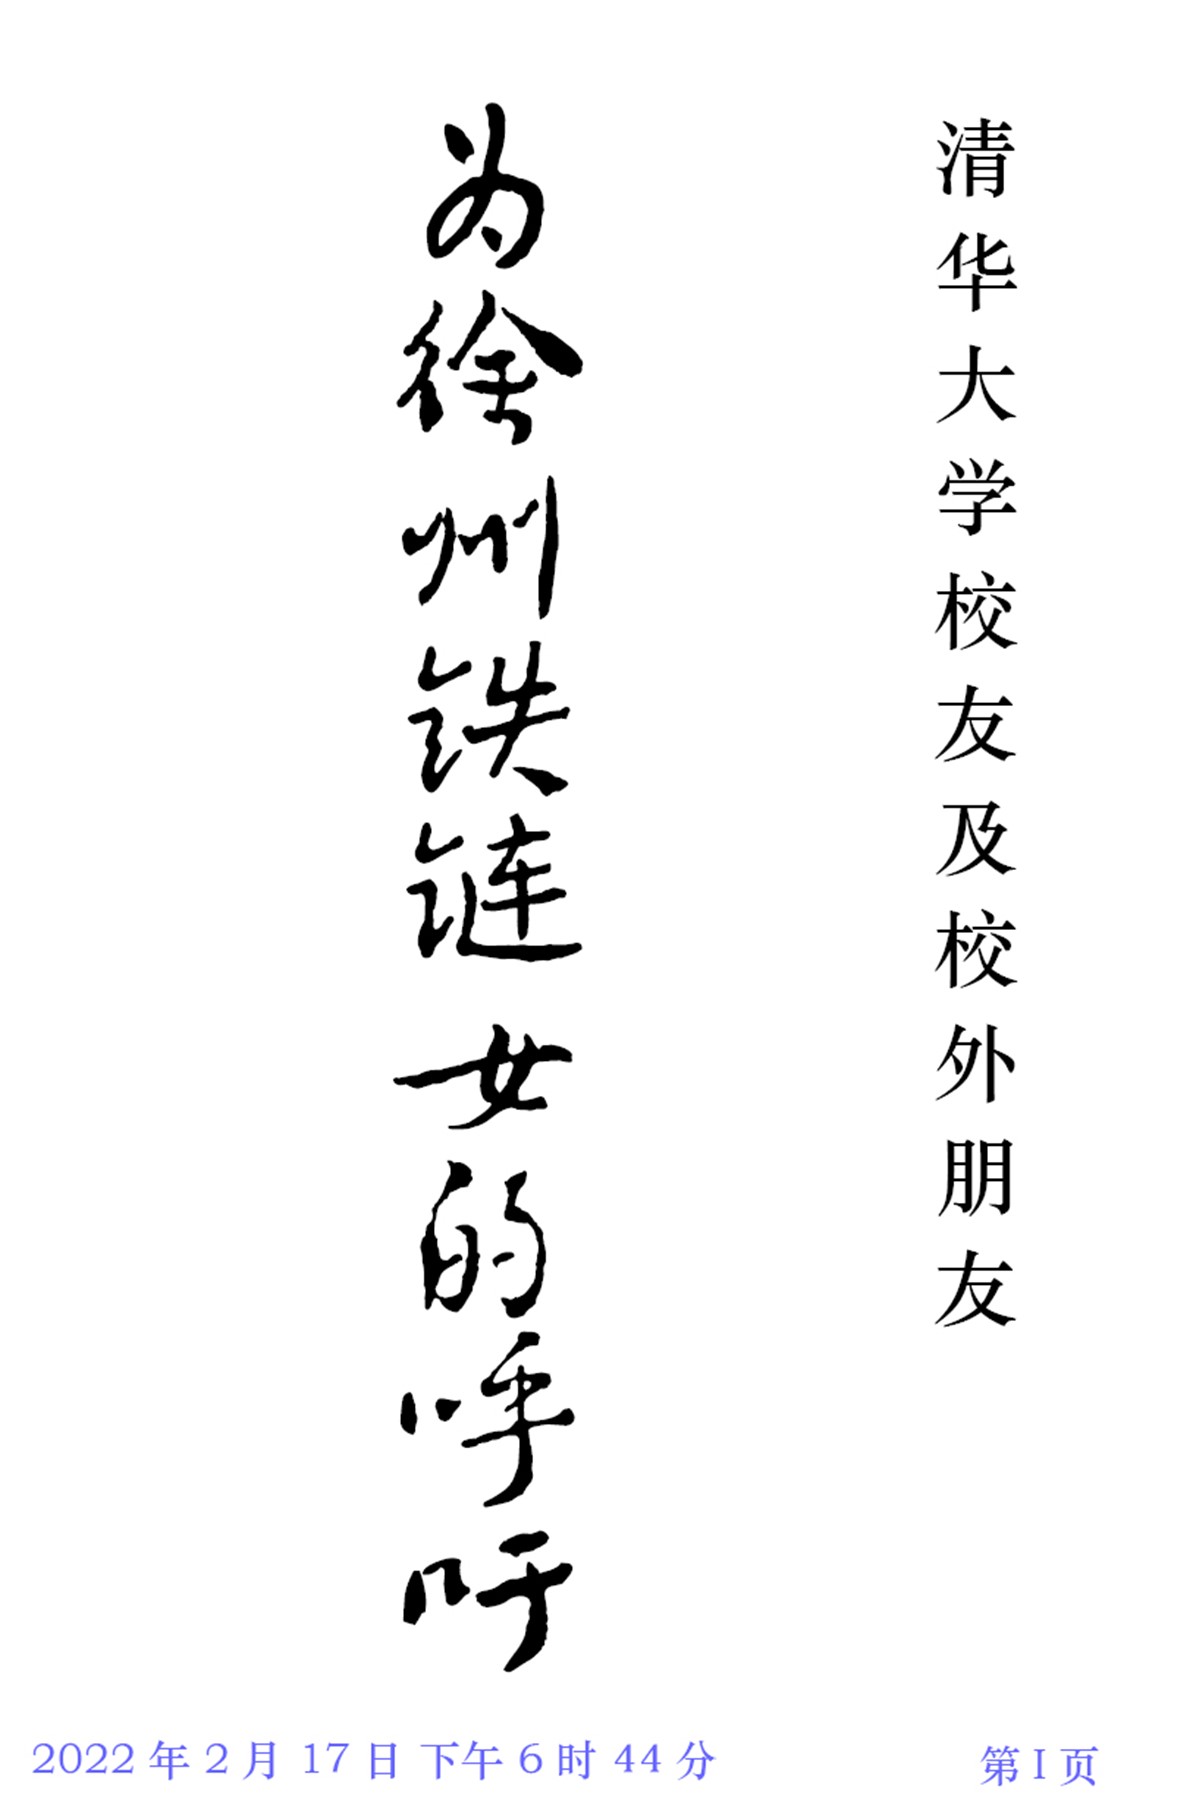 清华大学校友及校外朋友
为徐州铁链女的呼吁
2022 年 2 月 17 日 下午 6 时 44 分
第 I 页